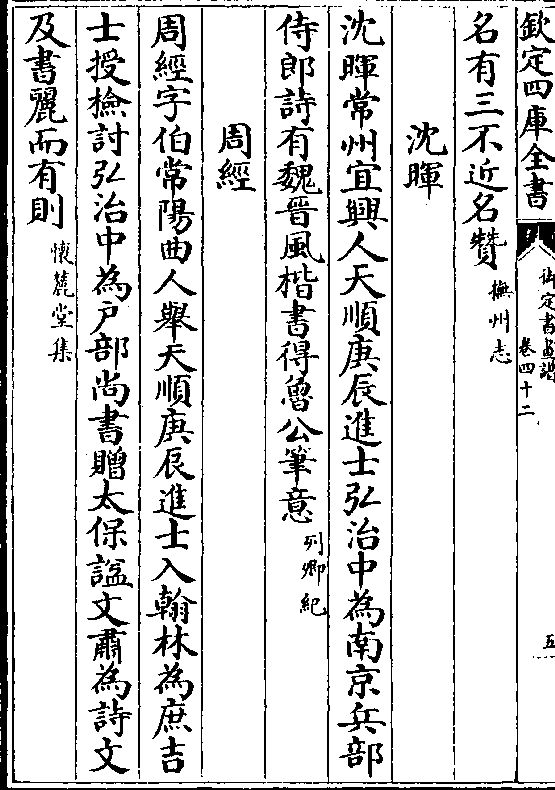 欽定四庫全書
御定書畫譜
卷四十二
五
名有三不近名贊撫州志
沈暉
沈暉常州宜興人天順庚辰進士弘治中為南京兵部
侍郎詩有魏晉風楷書得魯公筆意列卿紀
周經
周經字伯常陽曲人舉天順庚辰進士入翰林為庶吉
士授檢討弘治中為戶部尚書贈太保諡文肅為詩文
及書麗而有則懷麓堂集